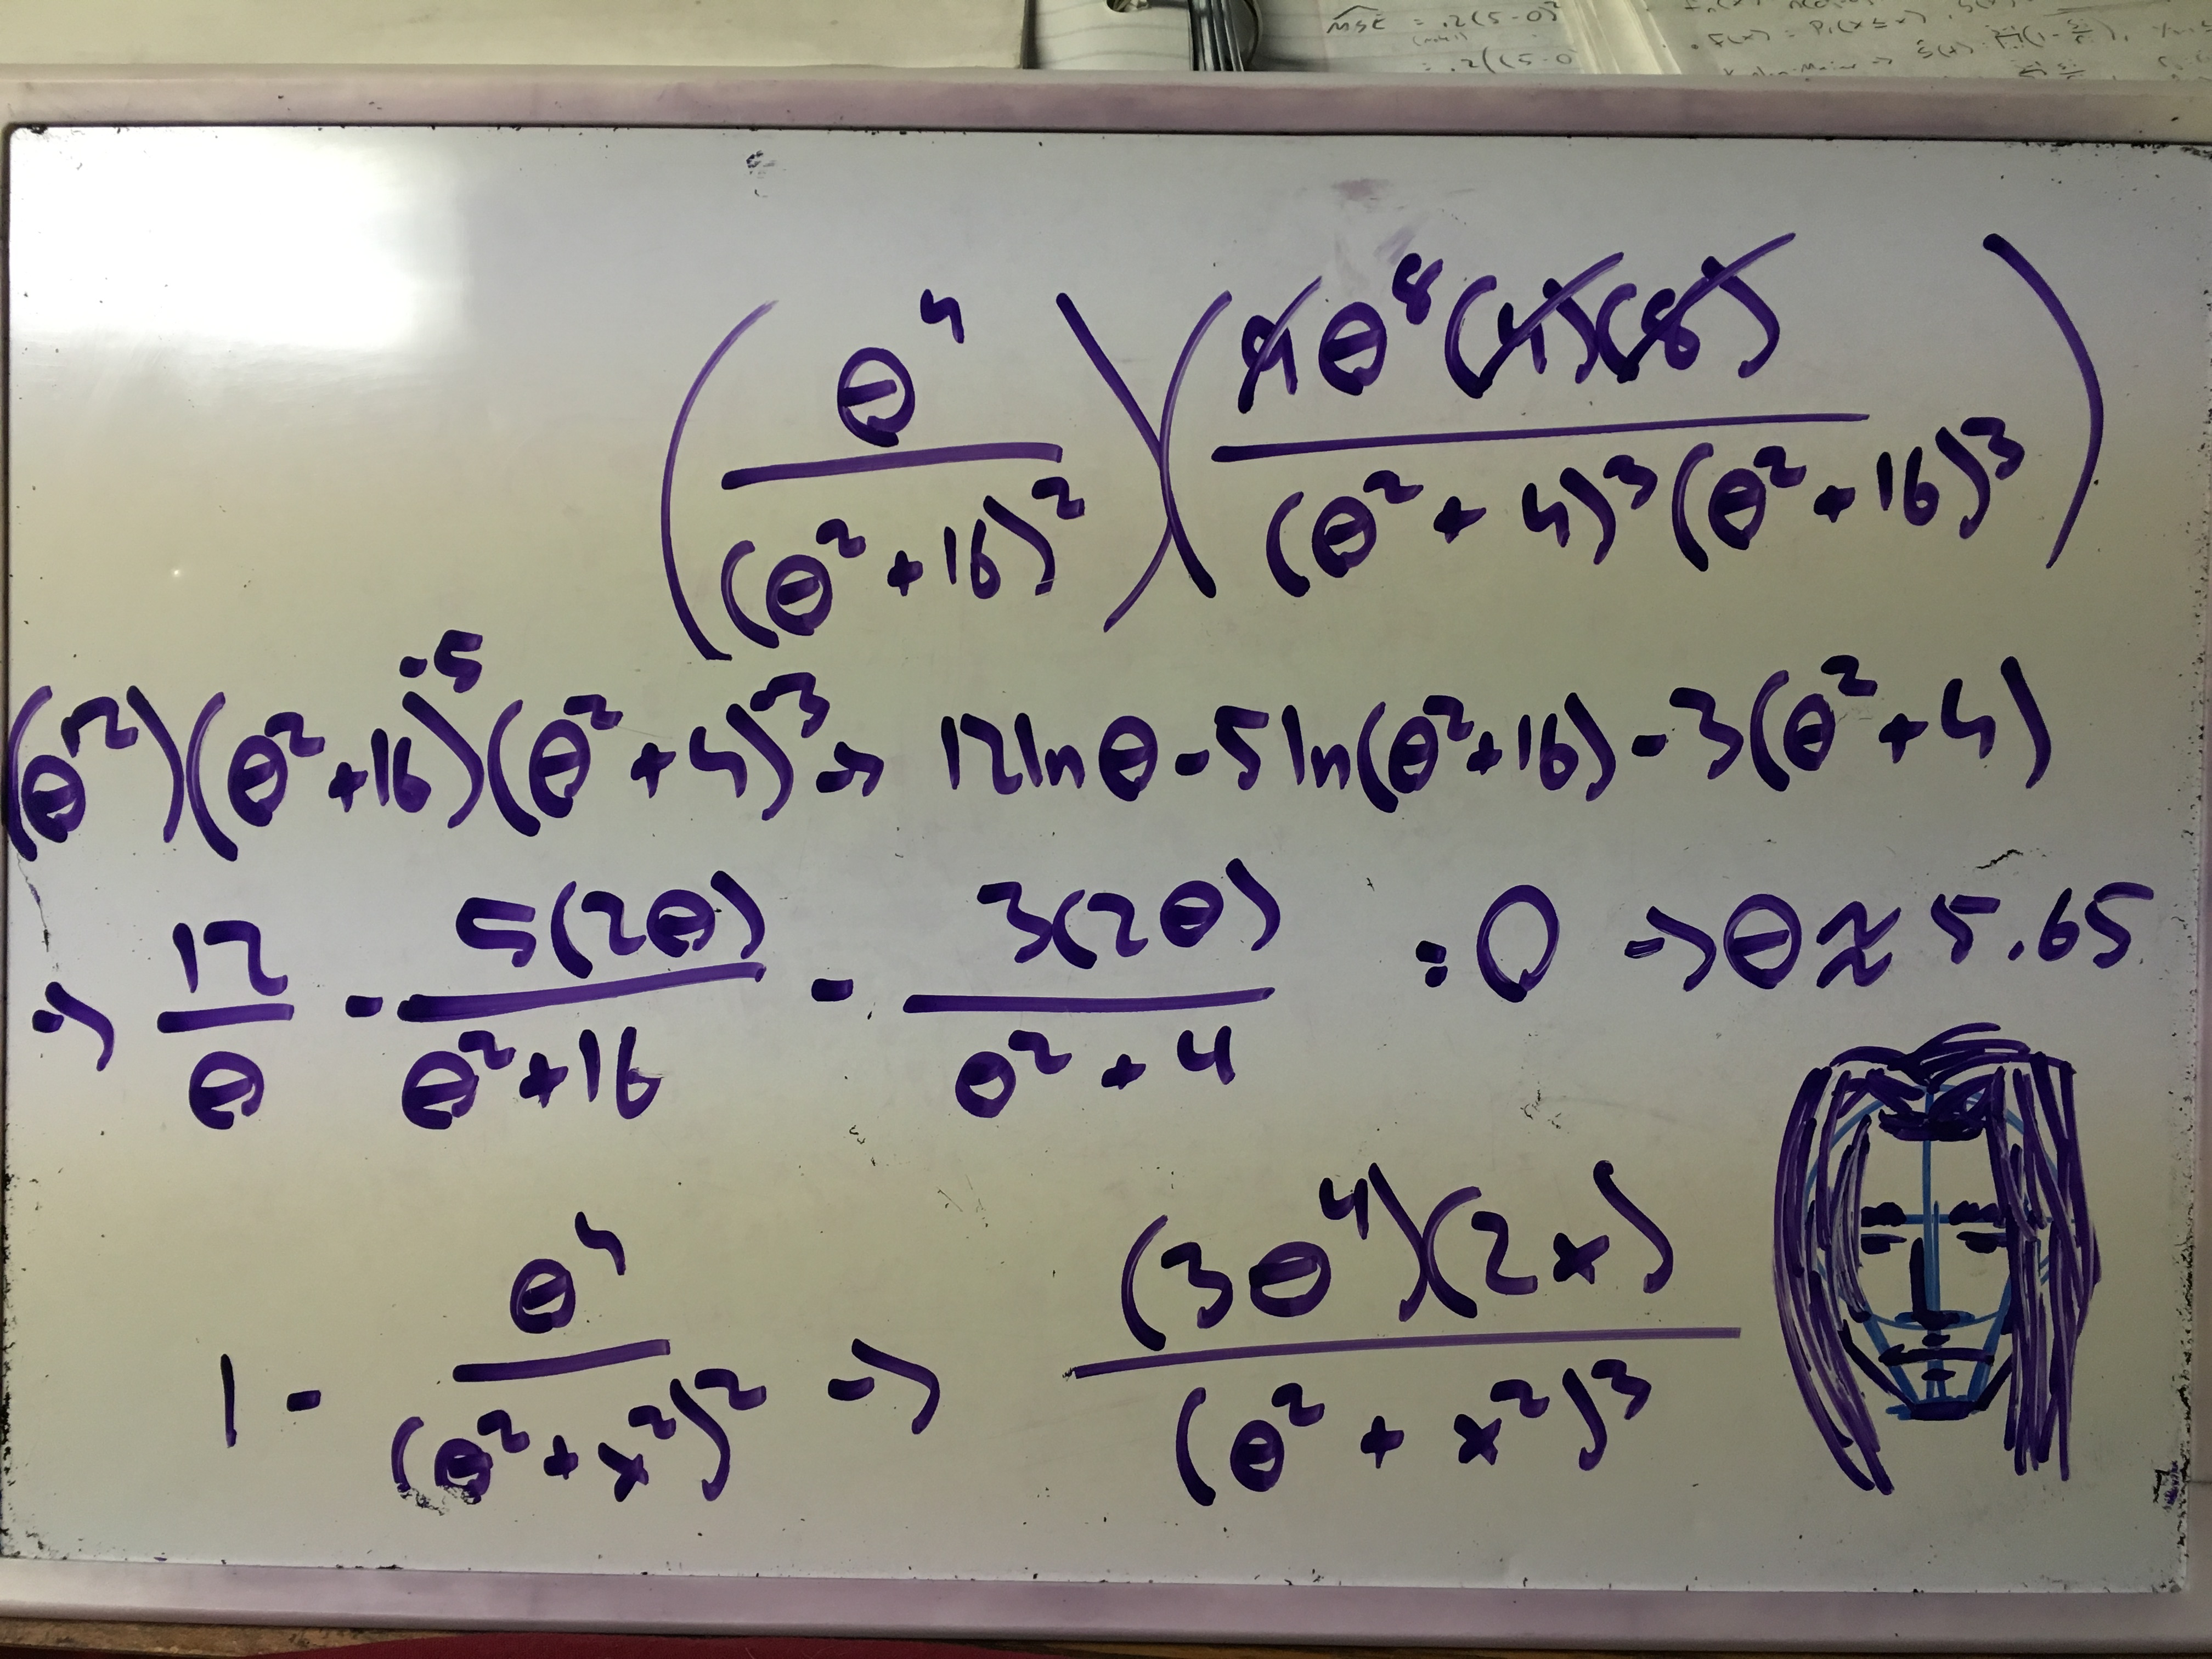 MSE = .2(5-0)²
= .2((5-0
(θ⁴ / (θ² + 16)²) (4θ⁸(4)(8) / (θ² + 4)³(θ² + 16)³)
(θ¹²)(θ² + 16)⁻⁵(θ² + 4)⁻³ → 12 ln θ - 5 ln(θ² + 16) - 3(θ² + 4)
→ 12/θ - 5(2θ)/(θ² + 16) - 3(2θ)/(θ² + 4) = 0 → θ ≈ 5.65
1 - θ⁴/(θ² + x²)² → (3θ⁴)(2x)/(θ² + x²)³